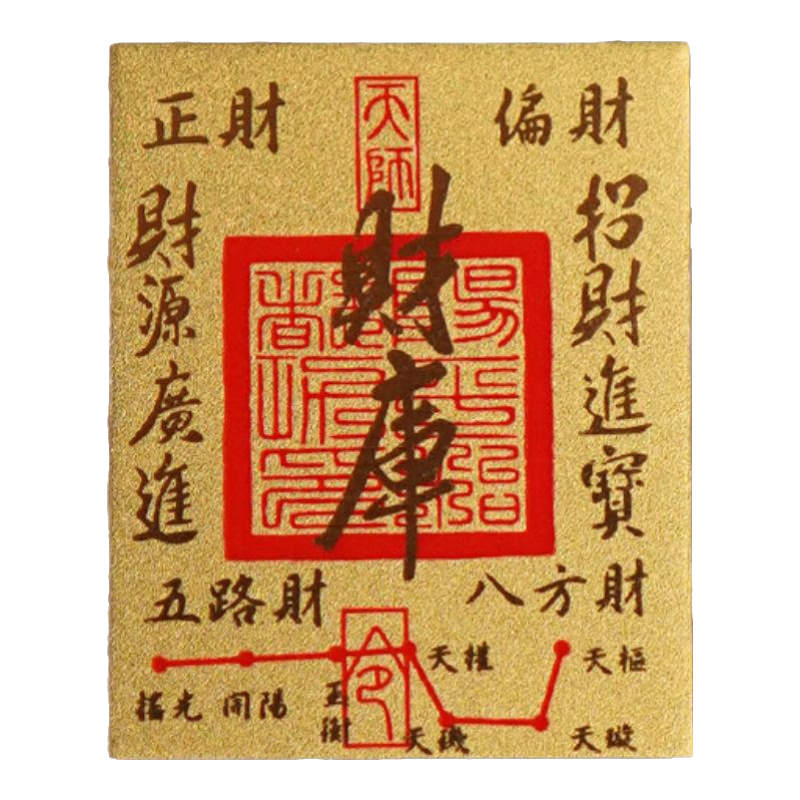 天師
正財
偏財
招財進寶
財源廣進
財庫
五路財
八方財
令
搖光
開陽
玉衡
天權
天璣
天璇
天樞